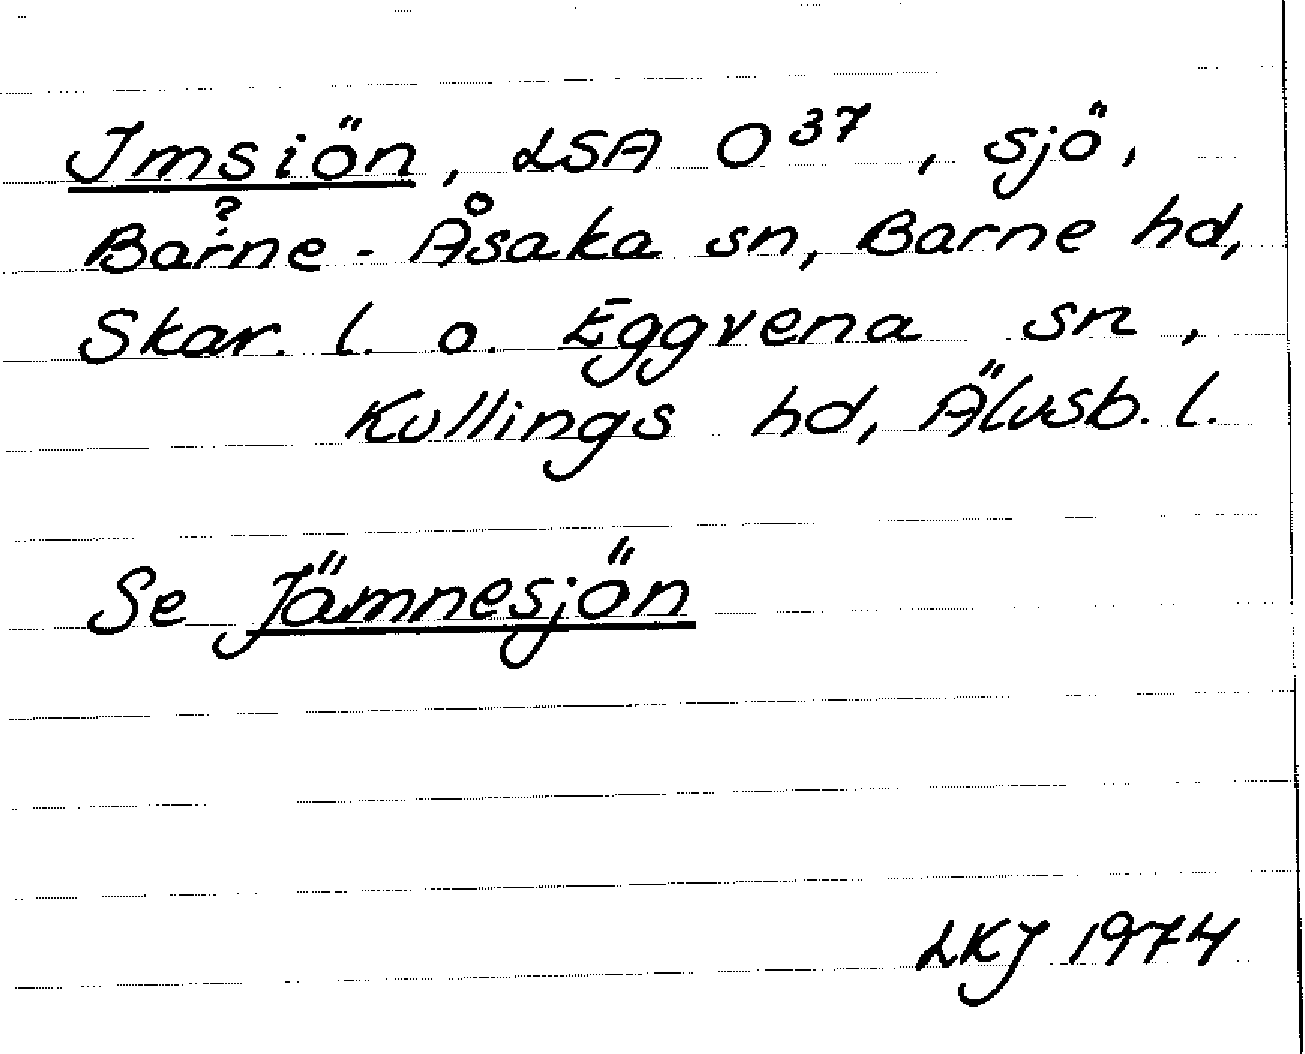 Imsiön, LSA O 37, sjö,
Barne?-Åsaka sn, Barne hd,
Skar. l. o. Eggvena sn,
Kullings hd, Älvsb. l.
Se Jämnesjön
LKJ 1974